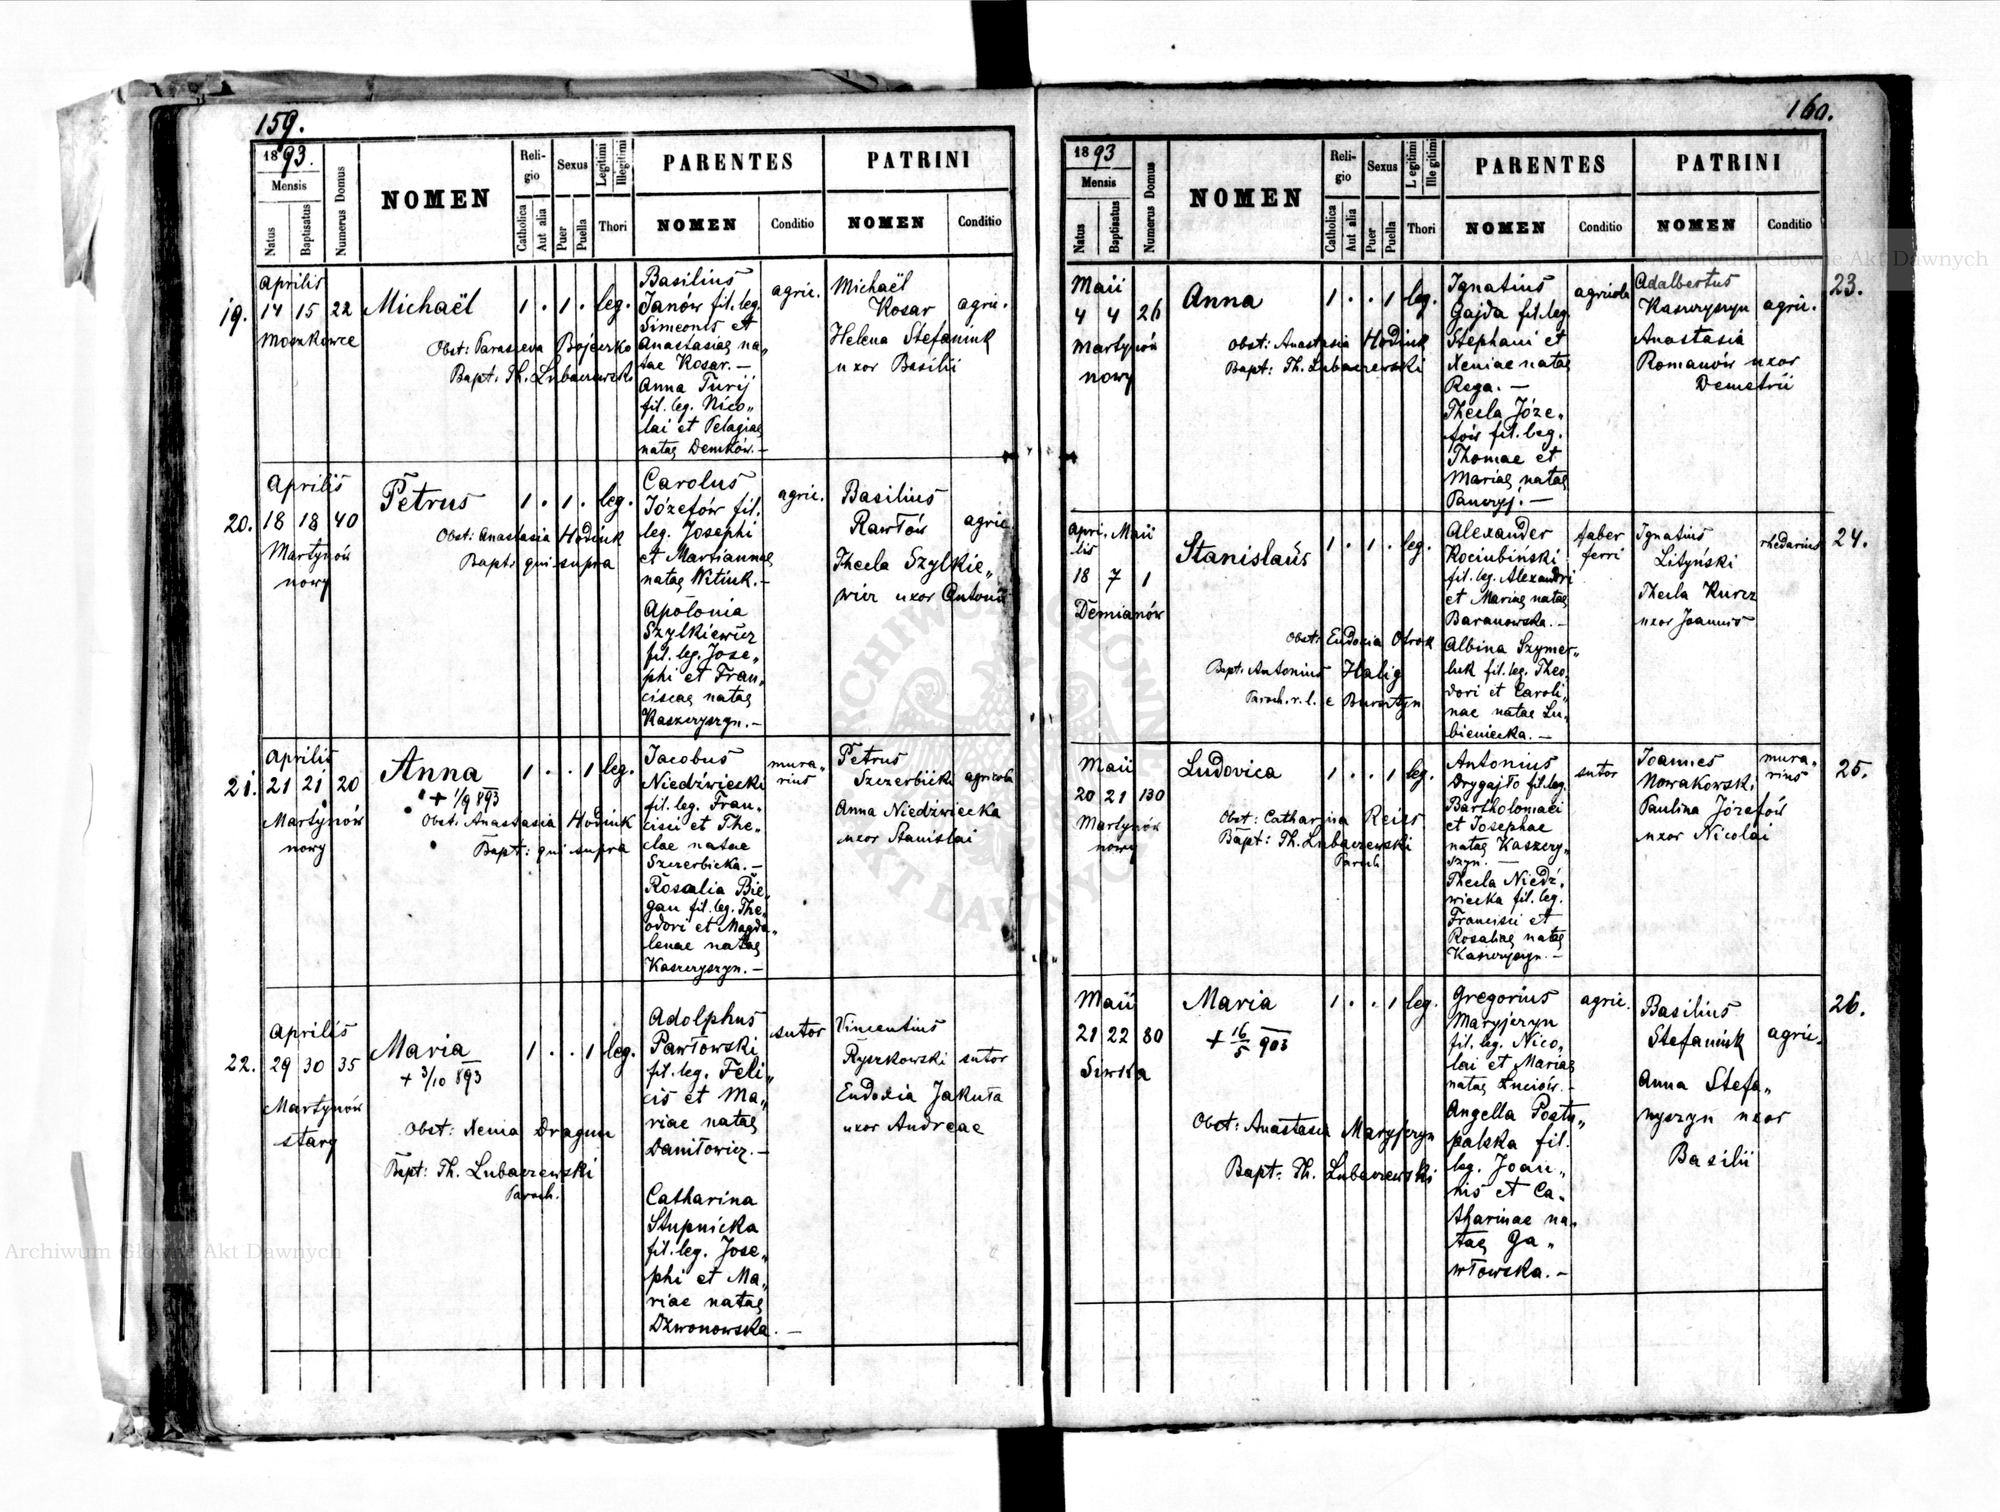 159.
1893.
Mensis
Natus
Baptisatus
Numerus Domus
NOMEN
Religio
Catholica
Aut alia
Sexus
Puer
Puella
Legitimi
Illegitimi
Thori
PARENTES
NOMEN
Conditio
PATRINI
NOMEN
Conditio
19.
Aprilis
14 15 22
Moszkowce
Michaël
1 . 1 . leg.
Obst: Parasceva Bojeczko
Bapt: Th. Lubaczewski
Basilius
Janów fil. leg.
Simeonis et
Anastasiae na„
tae Kosar. —
Anna Turij
fil. leg. Nico„
lai et Pelagiae
natae Demków. —
agric.
Michaël
Kosar agric.
Helena Stefaniuk
uxor Basilii
20.
Aprilis
18 18 40
Martynów
nowy
Petrus
1 . 1 . leg.
Obst: Anastasia Hodiuk
Bapt: qui supra
Carolus
Józefów fil.
leg. Josephi
et Mariannae
natae Witiuk. —
Apolonia
Szylkiewicz
fil. leg. Jose„
phi et Fran„
ciscae natae
Kaszczyszyn. —
agric.
Basilius
Rawłów agric.
Thecla Szylkie„
wicz uxor Antonii
21.
Aprilis
21 21 20
Martynów
nowy
Anna
+ 1/9 893
1 . . 1 leg.
Obst: Anastasia Hodiuk
Bapt: qui supra
Jacobus
Niedźwiecki
fil. leg. Fran„
cisci et The„
clae natae
Szczerbicka. —
Rosalia Bie„
gan fil. leg. The„
odori et Magda„
lenae natae
Kaszczyszyn. —
mura„
rius
Petrus
Szczerbicki agricola
Anna Niedźwiecka
uxor Stanislai
22.
Aprilis
29 30 35
Martynów
stary
Maria
+ 3/10 893
1 . . 1 leg.
Obst: Xenia Dragun
Bapt: Th. Lubaczewski
Paroch.
Adolphus
Pawłowski
fil. leg. Feli„
cis et Ma„
riae natae
Daniłowicz. —
Catharina
Stupnicka
fil. leg. Jose„
phi et Ma„
riae natae
Dzwonowska. —
sutor
Vincentius
Ryszkowski sutor
Eudoxia Jakuta
uxor Andreae
160.
1893
Mensis
Natus
Baptisatus
Numerus Domus
NOMEN
Religio
Catholica
Aut alia
Sexus
Puer
Puella
Legitimi
Illegitimi
Thori
PARENTES
NOMEN
Conditio
PATRINI
NOMEN
Conditio
23.
Maii
4 4 26
Martynów
nowy
Anna
1 . . 1 leg.
Obst: Anastasia Hodiuk
Bapt: Th. Lubaczewski
Ignatius
Gajda fil. leg.
Stephani et
Xeniae natae
Rega. —
Thecla Józe„
fów fil. leg.
Thomae et
Mariae natae
agricola
Adalbertus
Kaszczyszyn agric.
Anastasia
Romanów uxor
Demetrii
24.
Apri- Maii
lis
18 7 1
Demianów
Stanislaüs
1 . 1 . leg.
Obst: Eudoxia Otrok
Bapt: Antonius Halig
Paroch. r. l. e Bursztyn
Alexander
Kociubiński
fil. leg. Alexandri
et Mariae natae
Baranowska. —
Albina Szymer„
luk fil. leg. Theo„
dori et Caroli„
nae natae Lu„
bieniecka. —
faber
ferri
Ignatius
Lityński rhedarius
Thecla Kurcz
uxor Joannis
25.
Maii
20 21 130
Martynów
nowy
Ludovica
1 . . 1 leg.
Obst: Catharina Reiss
Bapt: Th. Lubaczewski
Paroch.
Antonius
Drygajło fil. leg.
Bartholomaei
et Josephae
natae Kaszczy„
szyn. —
Thecla Niedź„
wiecka fil. leg.
Francisci et
Rosaliae natae
Kaszczyszyn. —
sutor
Joannes
Nowakowski
mura„
rius
Paulina Józefów
uxor Nicolai
26.
Maii
21 22 80
Siwka
Maria
+ 16/5 903
1 . . 1 leg.
Obst: Anastasia Maryjczyn
Bapt: Th. Lubaczewski
Gregorius
Maryjczyn
fil. leg. Nico„
lai et Mariae
natae Łuciów. —
Angella Postu„
palska fil.
leg. Joan„
nis et Ca„
tharinae na„
tae Ga„
włowska. —
agric.
Basilius
Stefaniuk agric.
Anna Stefa„
nyszyn uxor
Basilii
Archiwum Główne Akt Dawnych
ARCHIWUM GŁÓWNE AKT DAWNYCH
Archiwum Główne Akt Dawnych